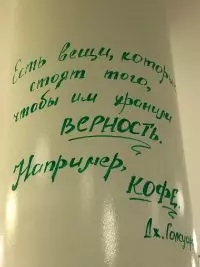 Есть вещи, которы
стоят того,
чтобы им хранили
ВЕРНОСТЬ.
Например,
КОФЕ.
Дж.